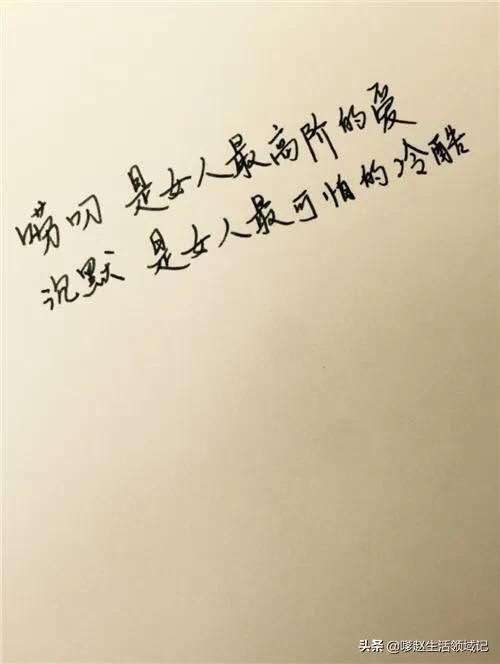 唠叨 是女人最高阶的爱
沉默 是女人最可怕的冷酷
头条 @嗲赵生活领域记